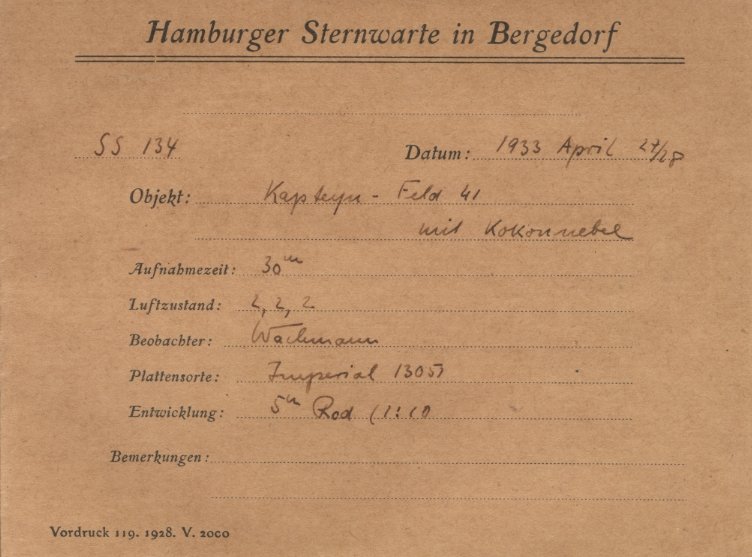 Hamburger Sternwarte in Bergedorf
SS 134 Datum: 1933 April 27/28
Objekt: Kapteyn - Feld 41
mit Kokonnebel
Aufnahmezeit: 30m
Luftzustand: 2, 2, 2
Beobachter: Wachmann
Plattensorte: Imperial
Entwicklung: 5m Rod (1:10
Bemerkungen:
Vordruck 119. 1928. V. 2000